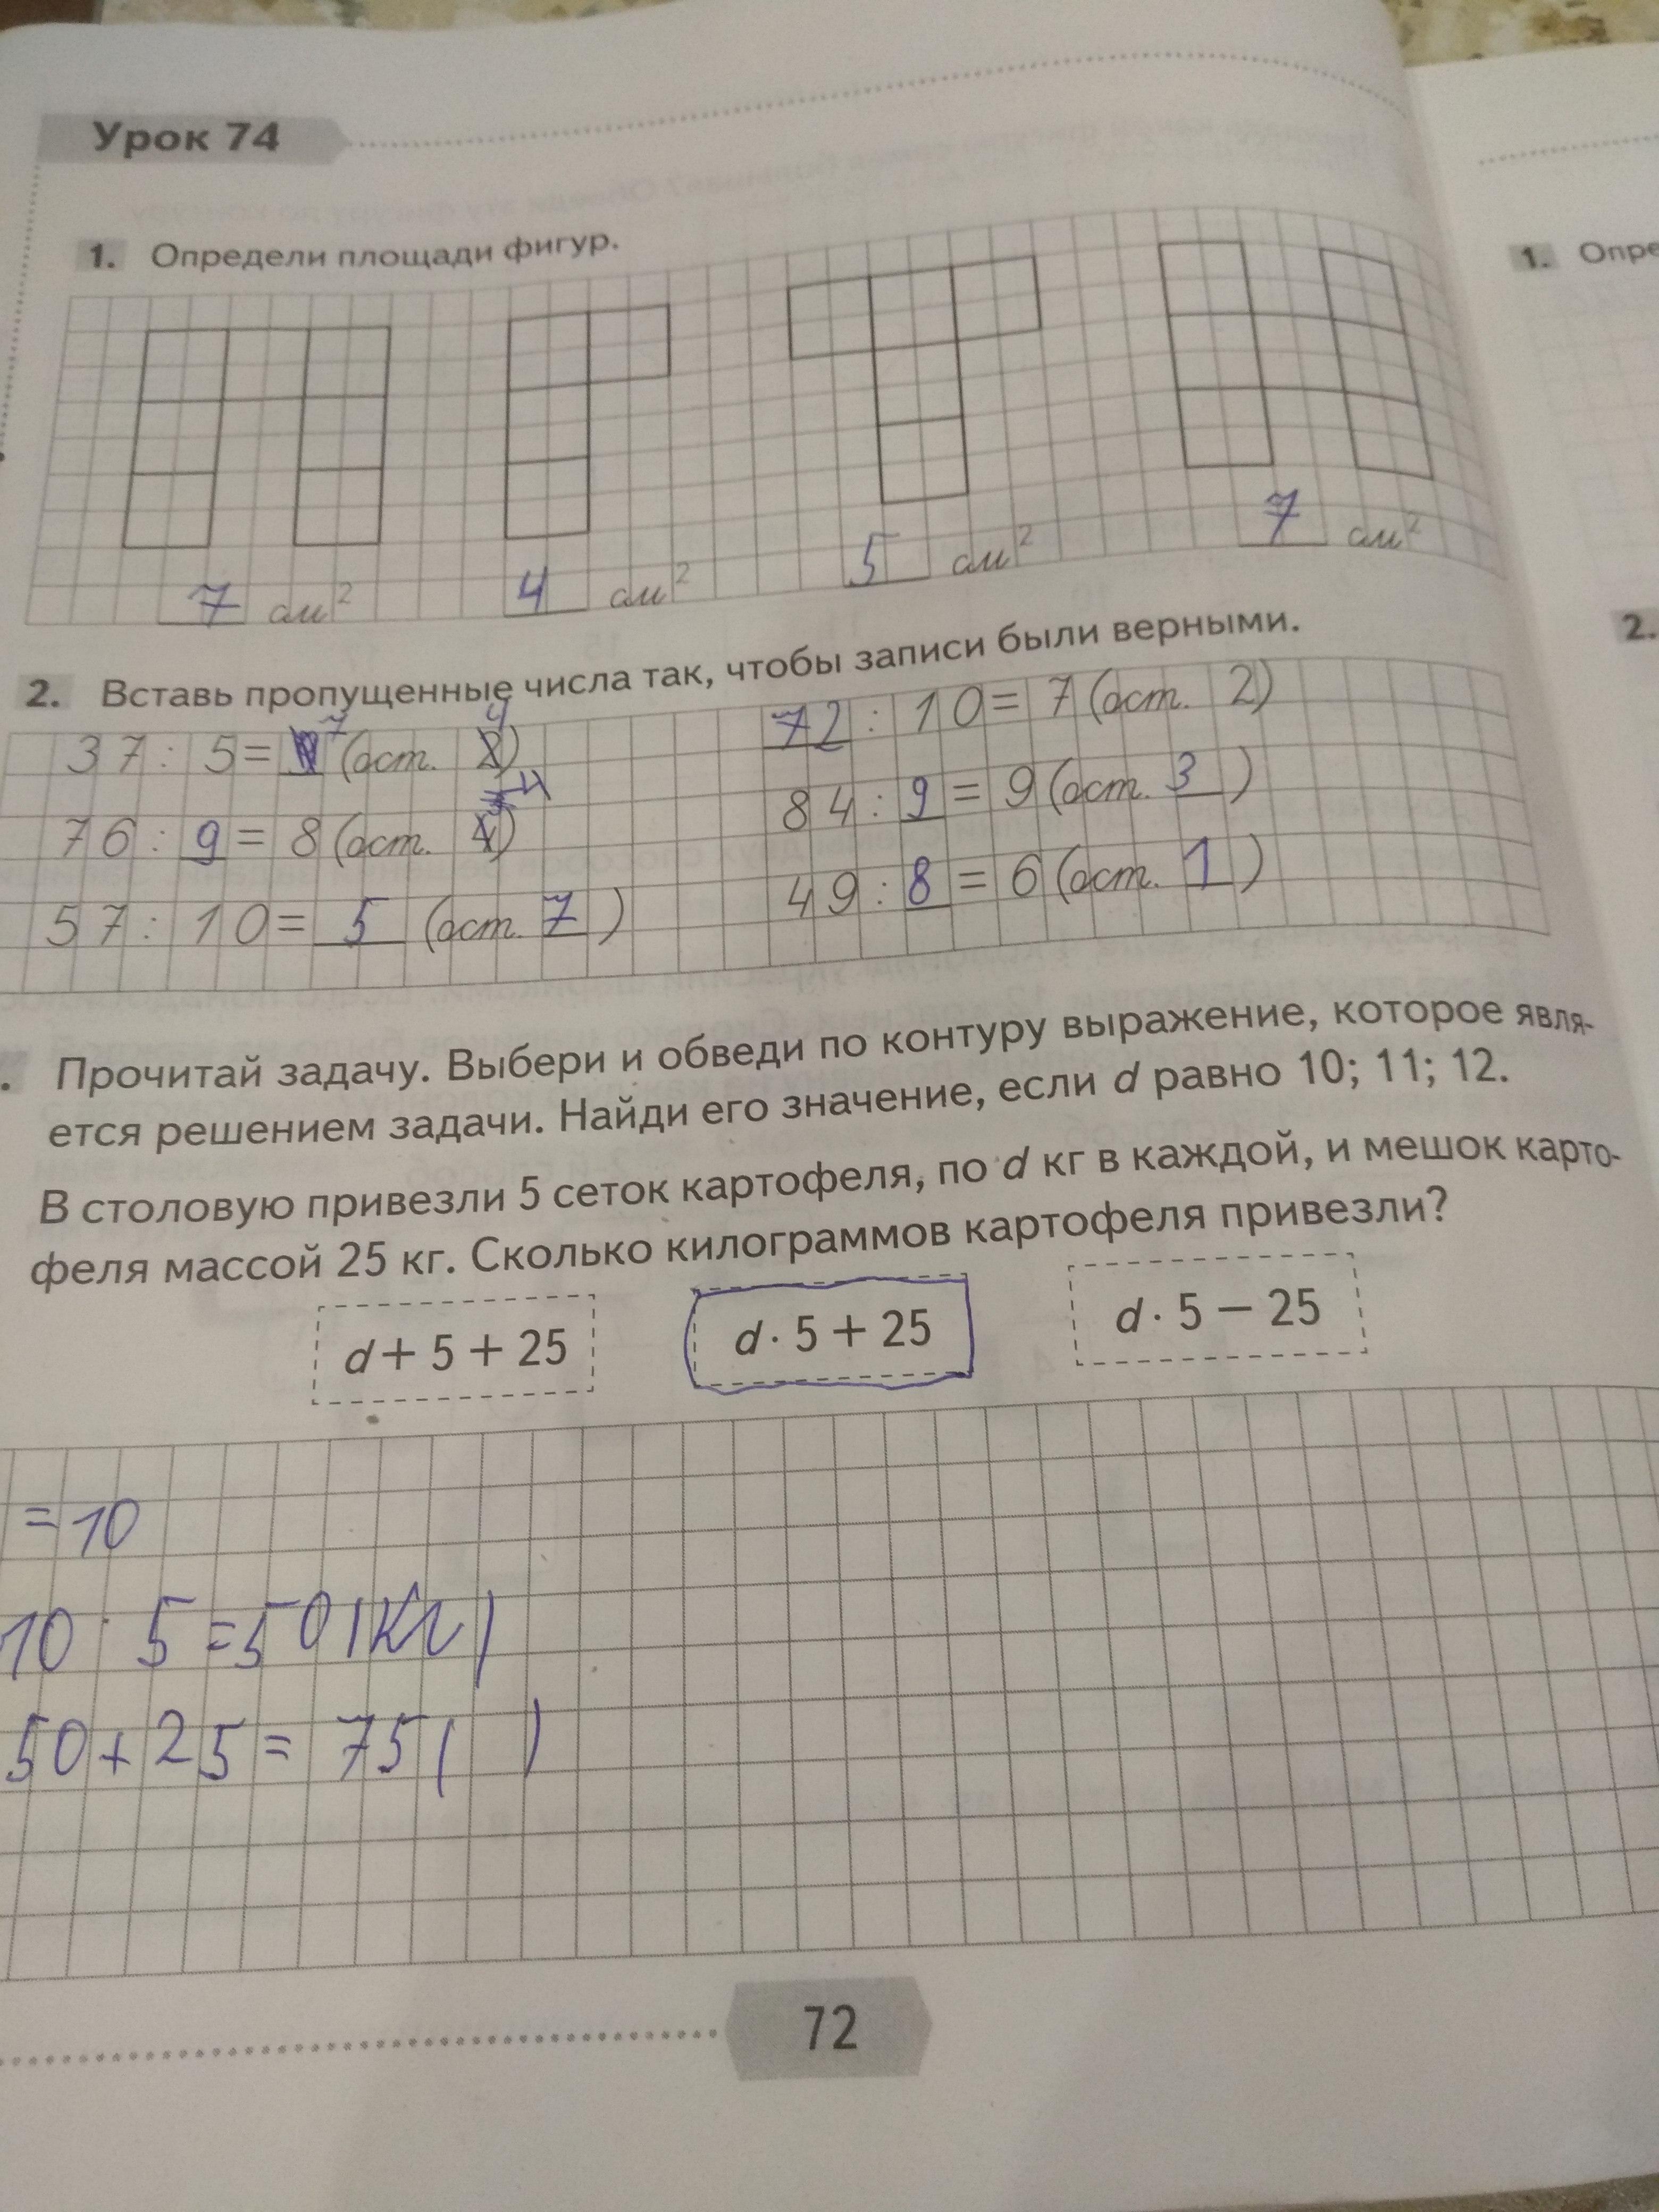 Урок 74
1. Определи площади фигур.
1. Опре
7 см² 4 см² 5 см² 7 см²
2. Вставь пропущенные числа так, чтобы записи были верными.
2.
37 : 5 = 7 (ост. 2) 72 : 10 = 7 (ост. 2)
76 : 9 = 8 (ост. 4) 84 : 9 = 9 (ост. 3)
57 : 10 = 5 (ост. 7) 49 : 8 = 6 (ост. 1)
. Прочитай задачу. Выбери и обведи по контуру выражение, которое явля-
ется решением задачи. Найди его значение, если d равно 10; 11; 12.
В столовую привезли 5 сеток картофеля, по d кг в каждой, и мешок карто-
феля массой 25 кг. Сколько килограммов картофеля привезли?
d + 5 + 25 d · 5 + 25 d · 5 − 25
= 10
10 · 5 = 50 (кг)
50 + 25 = 75 ( )
72